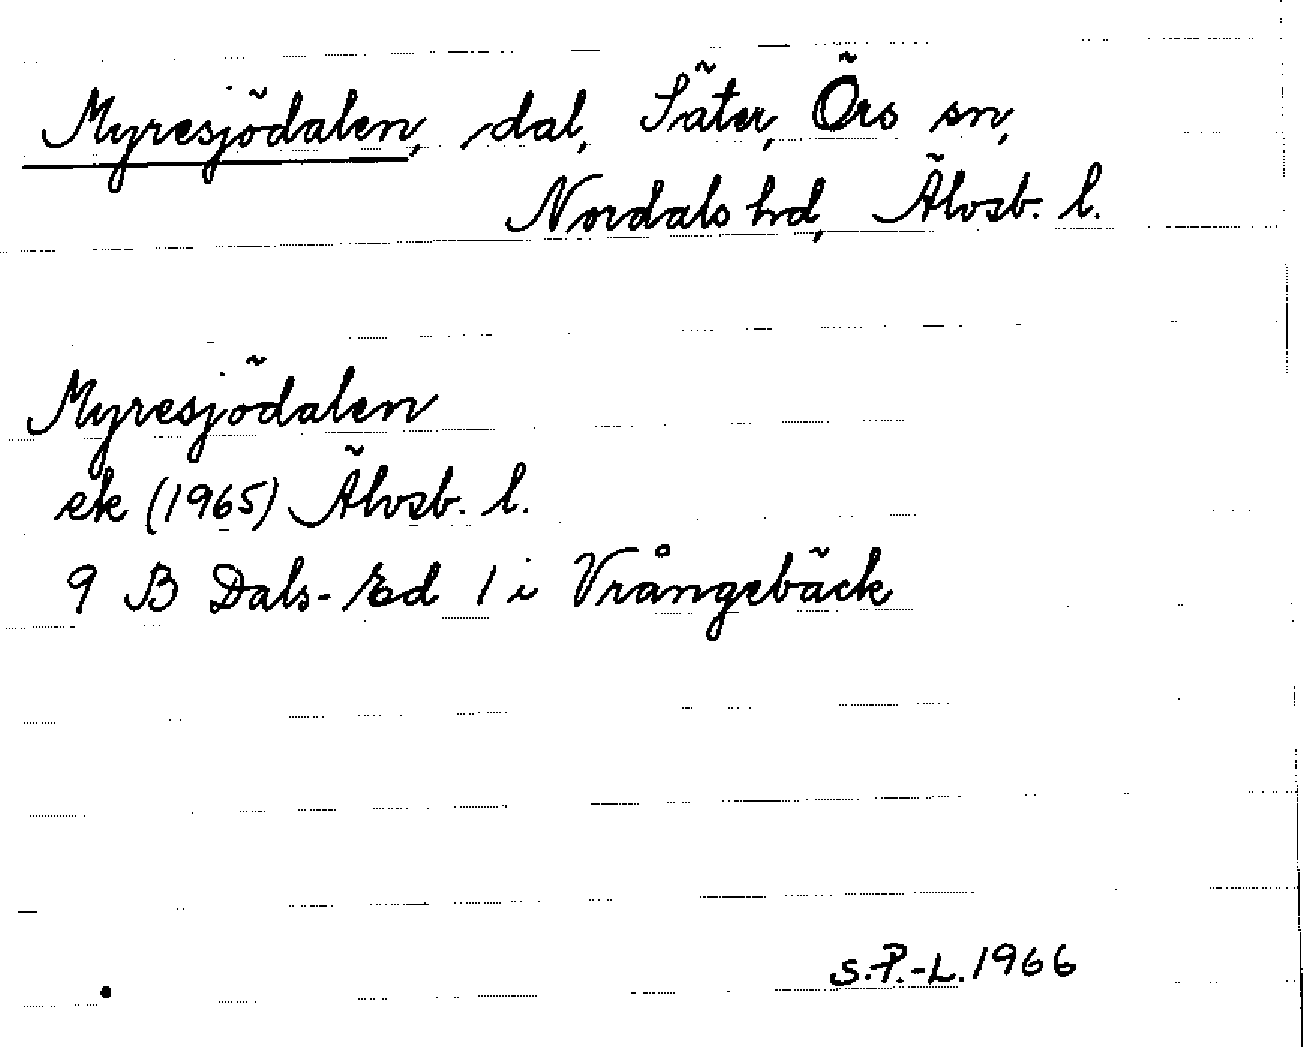 Myresjödalen, dal, Säter, Örs sn,
Nordals hd, Älvsb. l.
Myresjödalen
ek (1965) Älvsb. l.
9 B Dals-Ed 1 i Vrångebäck
S.P.-L. 1966